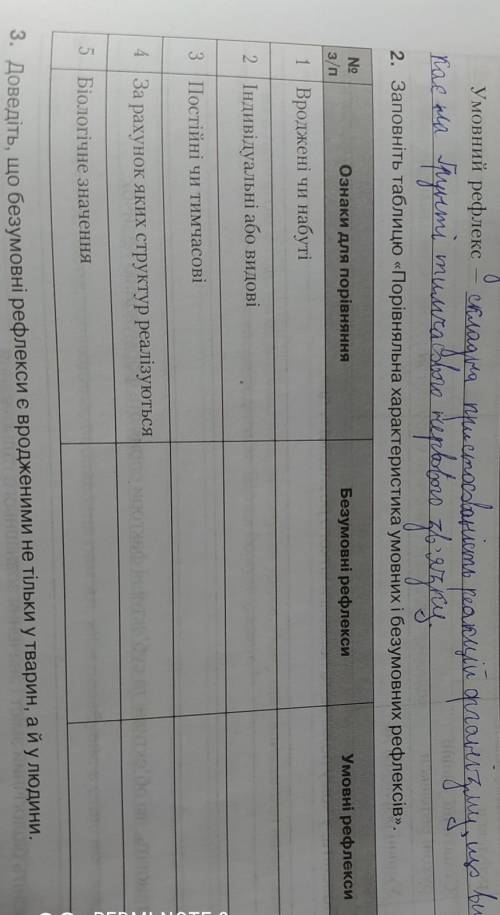 Умовний рефлекс – складна пристосованість реакцій організму, що ви
кає на ґрунті тимчасового нервового зв'язку.
2. Заповніть таблицю «Порівняльна характеристика умовних і безумовних рефлексів».
№ з/п Ознаки для порівняння Безумовні рефлекси Умовні рефлекси
1 Вроджені чи набуті
2 Індивідуальні або видові
3 Постійні чи тимчасові
4 За рахунок яких структур реалізуються
5 Біологічне значення
3. Доведіть, що безумовні рефлекси є вродженими не тільки у тварин, а й у людини.